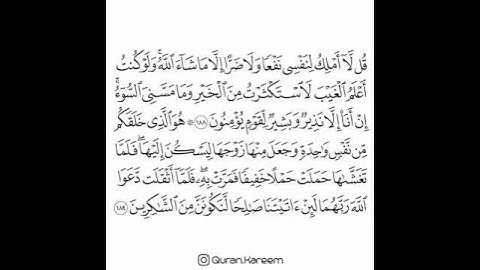 قُل لَّآ أَمْلِكُ لِنَفْسِى نَفْعًا وَلَا ضَرًّا إِلَّا مَا شَآءَ ٱللَّهُ ۚ وَلَوْ كُنتُ
أَعْلَمُ ٱلْغَيْبَ لَٱسْتَكْثَرْتُ مِنَ ٱلْخَيْرِ وَمَا مَسَّنِىَ ٱلسُّوٓءُ ۚ
إِنْ أَنَا۠ إِلَّا نَذِيرٌ وَبَشِيرٌ لِّقَوْمٍ يُؤْمِنُونَ ١٨٨ ۞ هُوَ ٱلَّذِى خَلَقَكُم
مِّن نَّفْسٍ وَٰحِدَةٍ وَجَعَلَ مِنْهَا زَوْجَهَا لِيَسْكُنَ إِلَيْهَا ۖ فَلَمَّا
تَغَشَّىٰهَا حَمَلَتْ حَمْلًا خَفِيفًا فَمَرَّتْ بِهِۦ ۖ فَلَمَّآ أَثْقَلَت دَّعَوَا
ٱللَّهَ رَبَّهُمَا لَئِنْ ءَاتَيْتَنَا صَٰلِحًا لَّنَكُونَنَّ مِنَ ٱلشَّٰكِرِينَ ١٨٩
Quran.Kareem